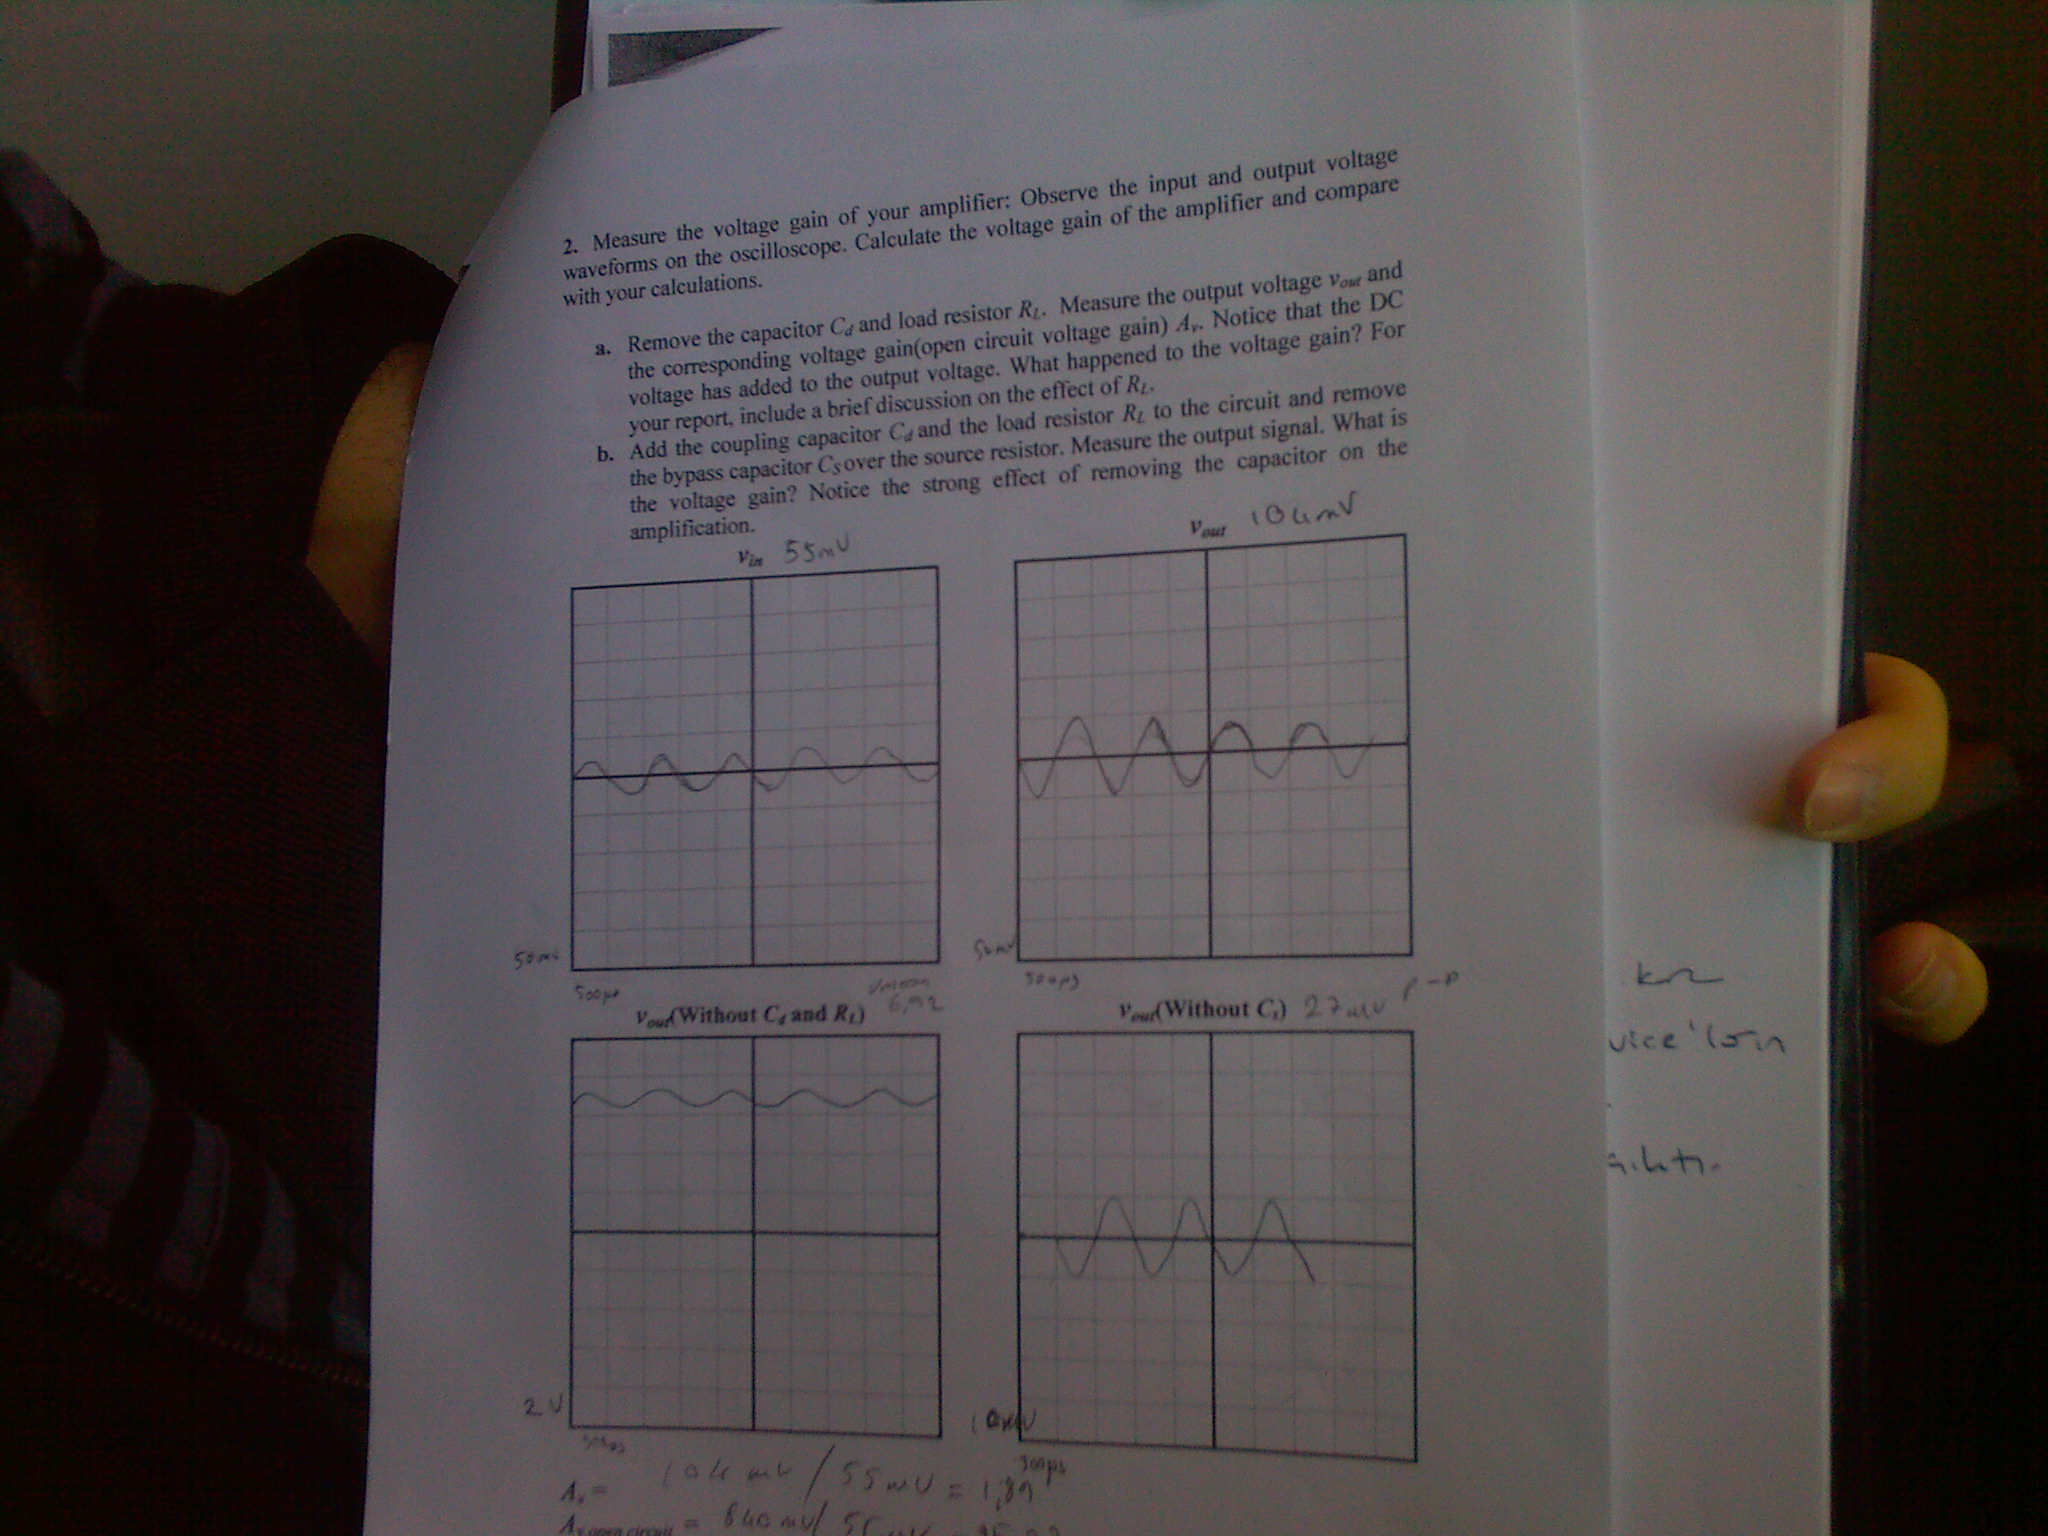 2. Measure the voltage gain of your amplifier: Observe the input and output voltage
waveforms on the oscilloscope. Calculate the voltage gain of the amplifier and compare
with your calculations.
a. Remove the capacitor Cd and load resistor RL. Measure the output voltage vout and
the corresponding voltage gain(open circuit voltage gain) Av. Notice that the DC
voltage has added to the output voltage. What happened to the voltage gain? For
your report, include a brief discussion on the effect of RL.
b. Add the coupling capacitor Cd and the load resistor RL to the circuit and remove
the bypass capacitor CS over the source resistor. Measure the output signal. What is
the voltage gain? Notice the strong effect of removing the capacitor on the
amplification.
vin 55mV
vout 104mV
50mV
500µs
50mV
500µs
6,92
vout(Without Cd and RL)
vout(Without Cs) 27mV P-P
2V
500µs
10mV
500µs
Av = 104 mV / 55 mV = 1,89
Av open circuit = 840 mV /